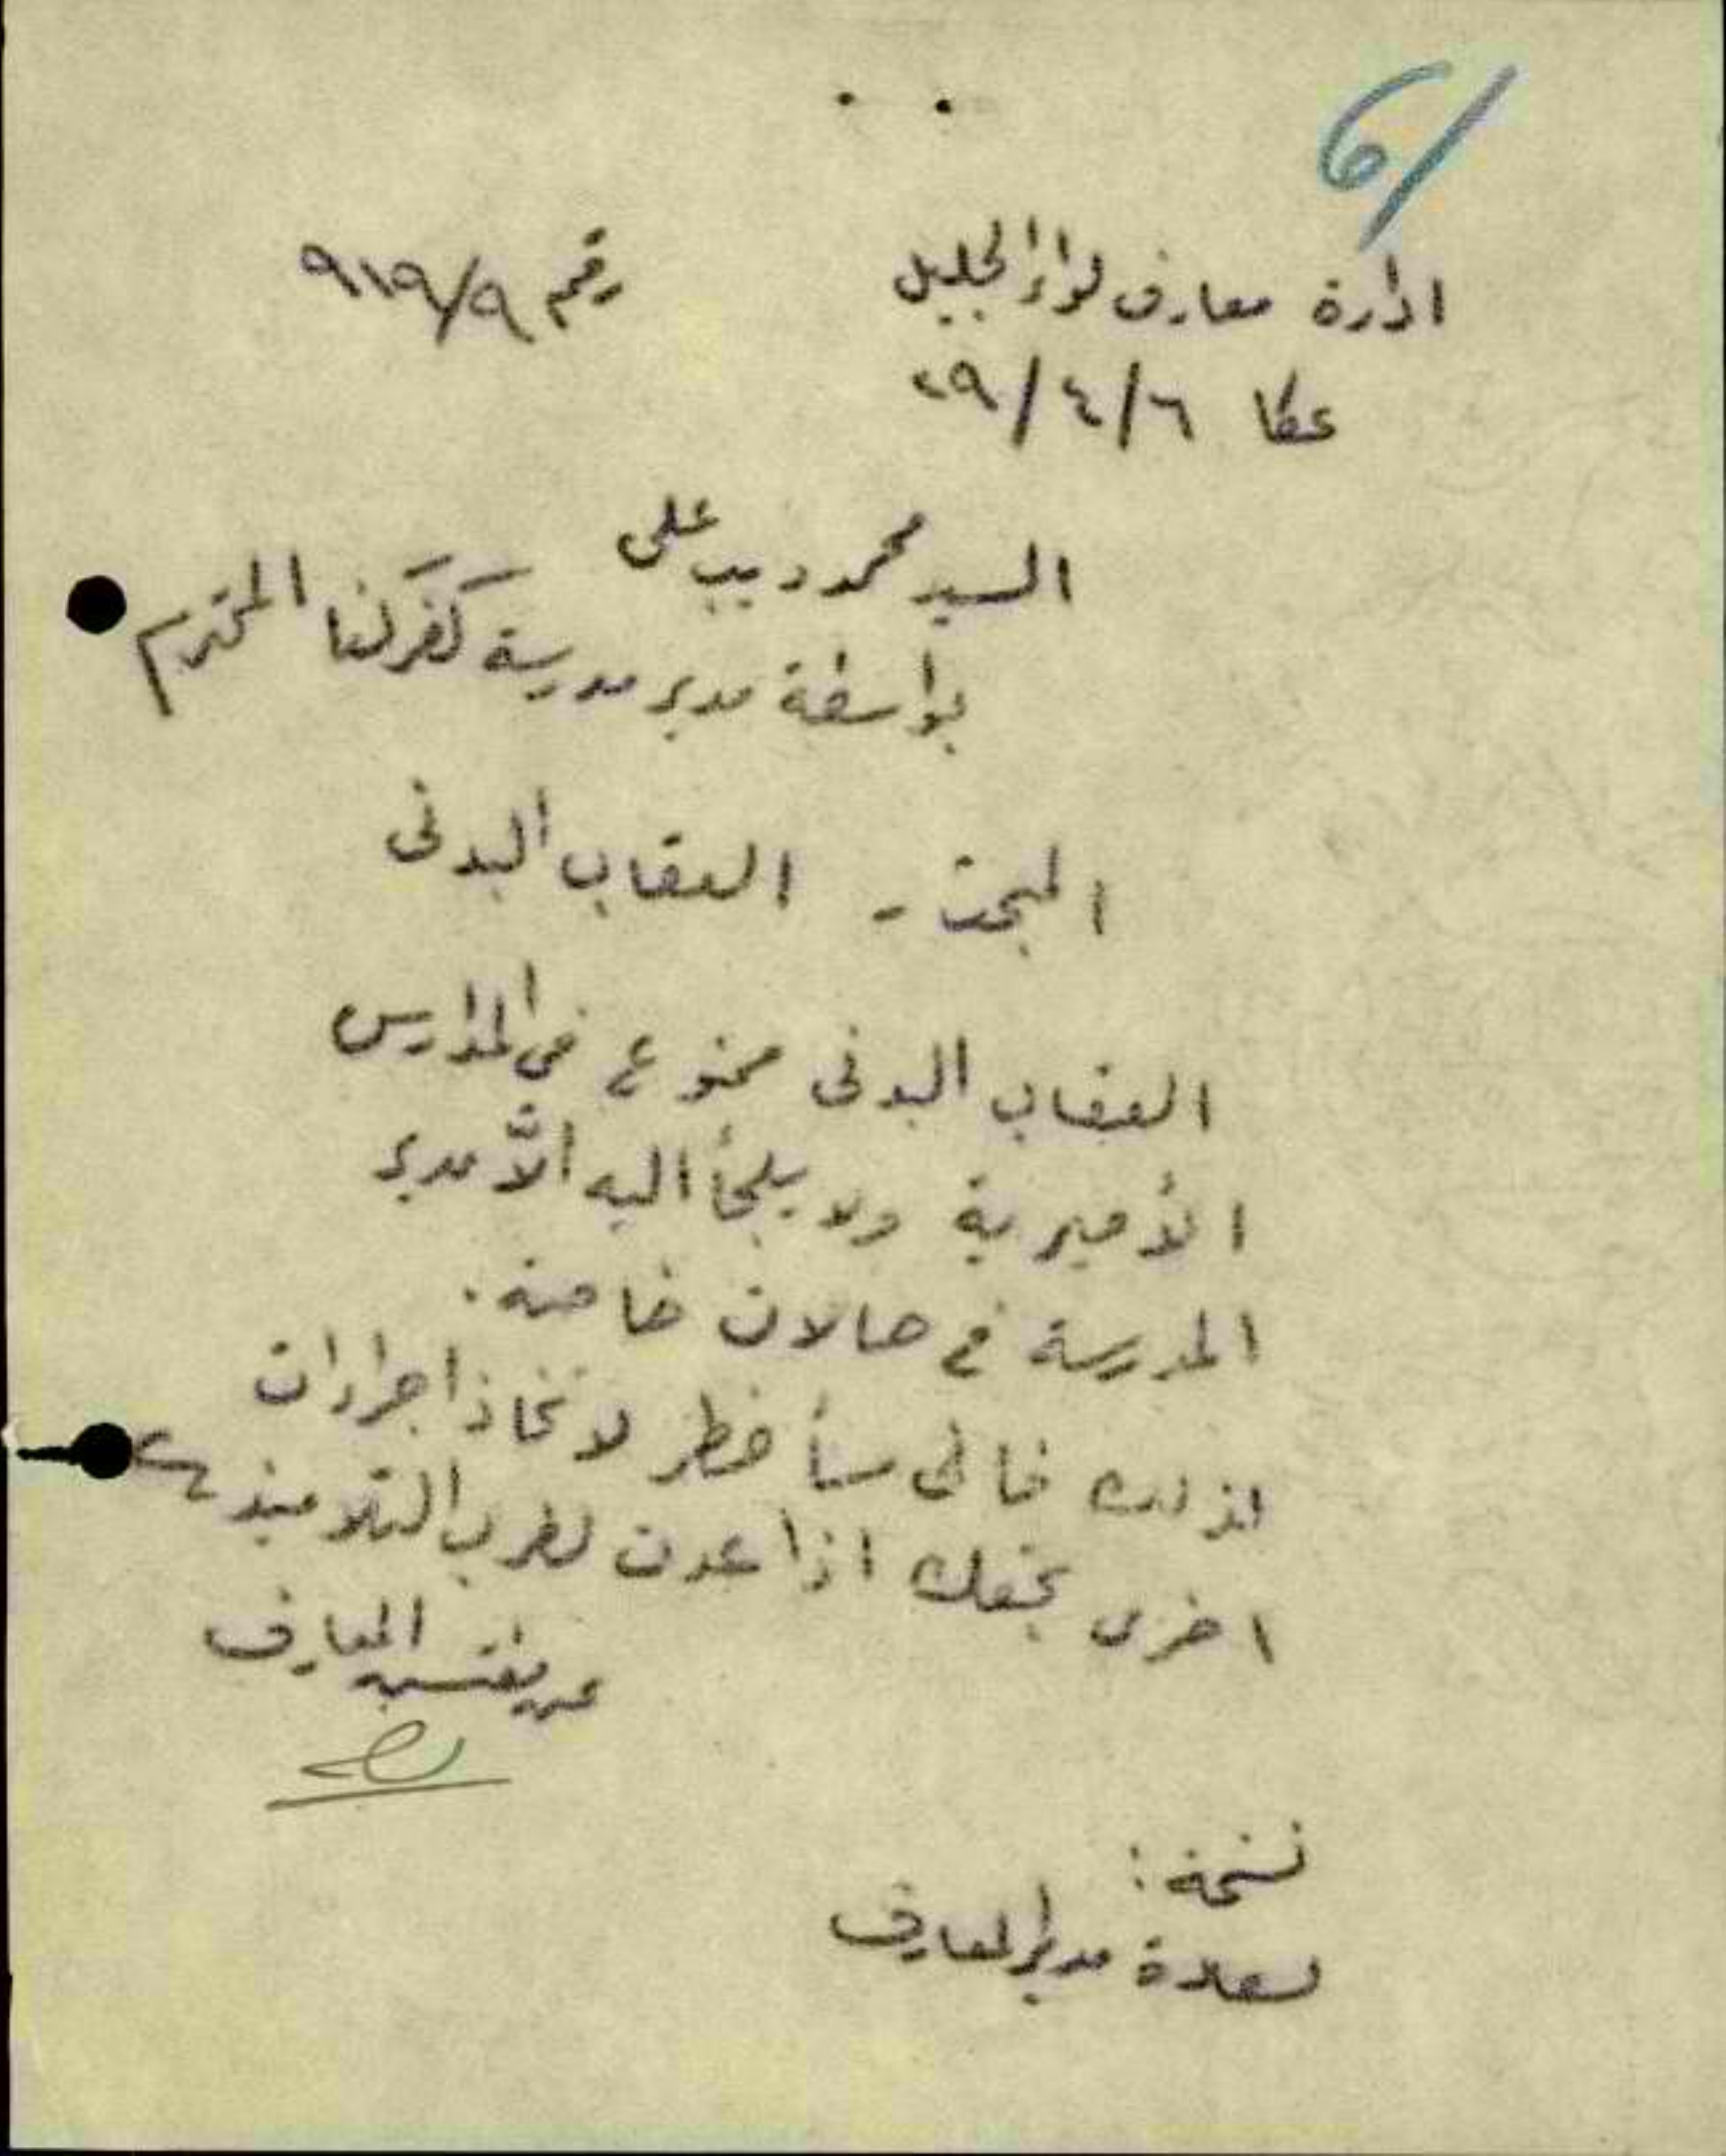 6/
ادارة معارف لواء الجليل
رقم ٩١٩/٩
عكا ٦/٤/٢٩
السيد محمد ديب على
بواسطة مدير مدرسة كفركنا المحترم
المبحث - العقاب البدنى
العقاب البدنى ممنوع في المدارس
الأميرية ولا يلجأ اليه الاّ مدير
المدرسة في حالات خاصة.
لذلك فانى سأضطر لاتخاذ اجراءات
اخرى بحقك اذا عدت لضرب التلاميذ
مفتش المعارف
نسخة:
لسعادة مدير المعارف